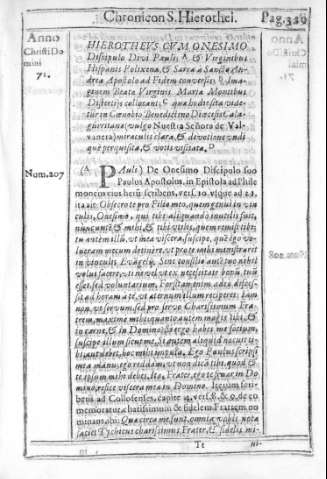 Chronicon S. Hierothei. Pag. 329
Anno
Christi Do
mini
71.
HIEROTHEVS CVM ONESIMO
Discipulo Divi Paulis A & Virginibus
Hispanis Polixena, & Sarra a Sancto An-
drea Apostolo ad Fidem conversis Ima-
ginem Beatæ Virginis Mariæ Montibus
Distertijs collocant; quæ hodie ita vide-
tur in Cœnobio Benedictino Diœcesis Cala-
guritanæ (vulgo Nuestra Señora de Val-
vanera) miraculis clara, & devotione undi-
que perquisita, & votis visitata.
Num. 207
(A Paulis) De Onesimo Discipulo suo
Paulus Apostolus, in Epistola ad Phile
monem eius herum scribens, vers. 10. usque ad 23.
ita ait: Obsecro te pro Filio meo, quem genui in vin
culis, Onesimo, qui tibi aliquando inutilis fuit,
nunc autem & mihi, & tibi utilis, quem remisi tibi;
tu autem illum, ut mea viscera, suscipe, quem ego vo-
lueram mecum detinere, ut pro te mihi ministraret
in vinculis Evangelij. Sine consilio autem tuo nihil
volui facere, uti ne velut ex necessitate bonum tuum
esset, sed voluntarium. Forsitan enim ideo disces-
sit ad horam a te, ut æternum illum reciperes: Iam
non, ut servum, sed pro servo Charissimum Fra-
trem, maxime mihi; quanto autem magis tibi, &
in carne, & in Domino? Si ergo habes me socium,
suscipe illum sicut me. Si autem aliquid nocuit ti-
bi, aut debet, hoc mihi imputa. Ego Paulus scripsi
mea manu, ego reddam, ut non dicam tibi, quod &
te ipsum mihi debes. Ita, Frater, ego te fruar in Do-
mino, refice viscera mea in Domino. Iterum scri-
bens ad Collossenses, capite 4. vers. 8. & 9. de eo
memoratur, charissimum & fidelem Fratrem no
minans
Quæ circa me sunt, omnia vobis nota
faciet Tychicus charissimus Frater, & fidelis mi-
Tt ni-